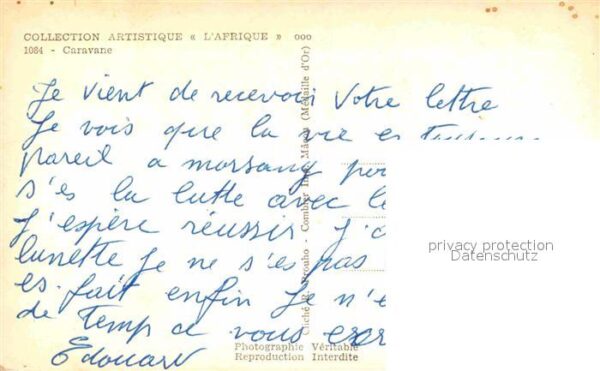 COLLECTION ARTISTIQUE « L'AFRIQUE » ooo
1084 - Caravane
Je vient de recevoir votre lettre
Je vois que la vie es toujours
pareil a morsang
s'es la lutte avec
J'espère réussir J'
lunette Je ne s'es pas
es fait enfin Je n'
de temp a vous
Edouard
privacy protection
Datenschutz
Cliché R. - Combier Imp. Mâcon (Médaille d'Or)
Photographie Véritable
Reproduction Interdite